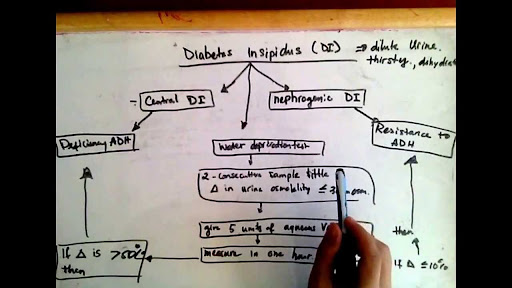 Diabetes Insipidus (DI) ⇒ dilute Urine.
thirsty, dehydrat
- Central DI
nephrogenic DI
Defficiency ADH
Resistance to
ADH
Water deprivation test
2 - consecutive sample little
Δ in urine osmolality ≤ 3
give 5 units of aqueous V
measure in one hour
If Δ is >50%
then
then
If Δ ≤ 10%